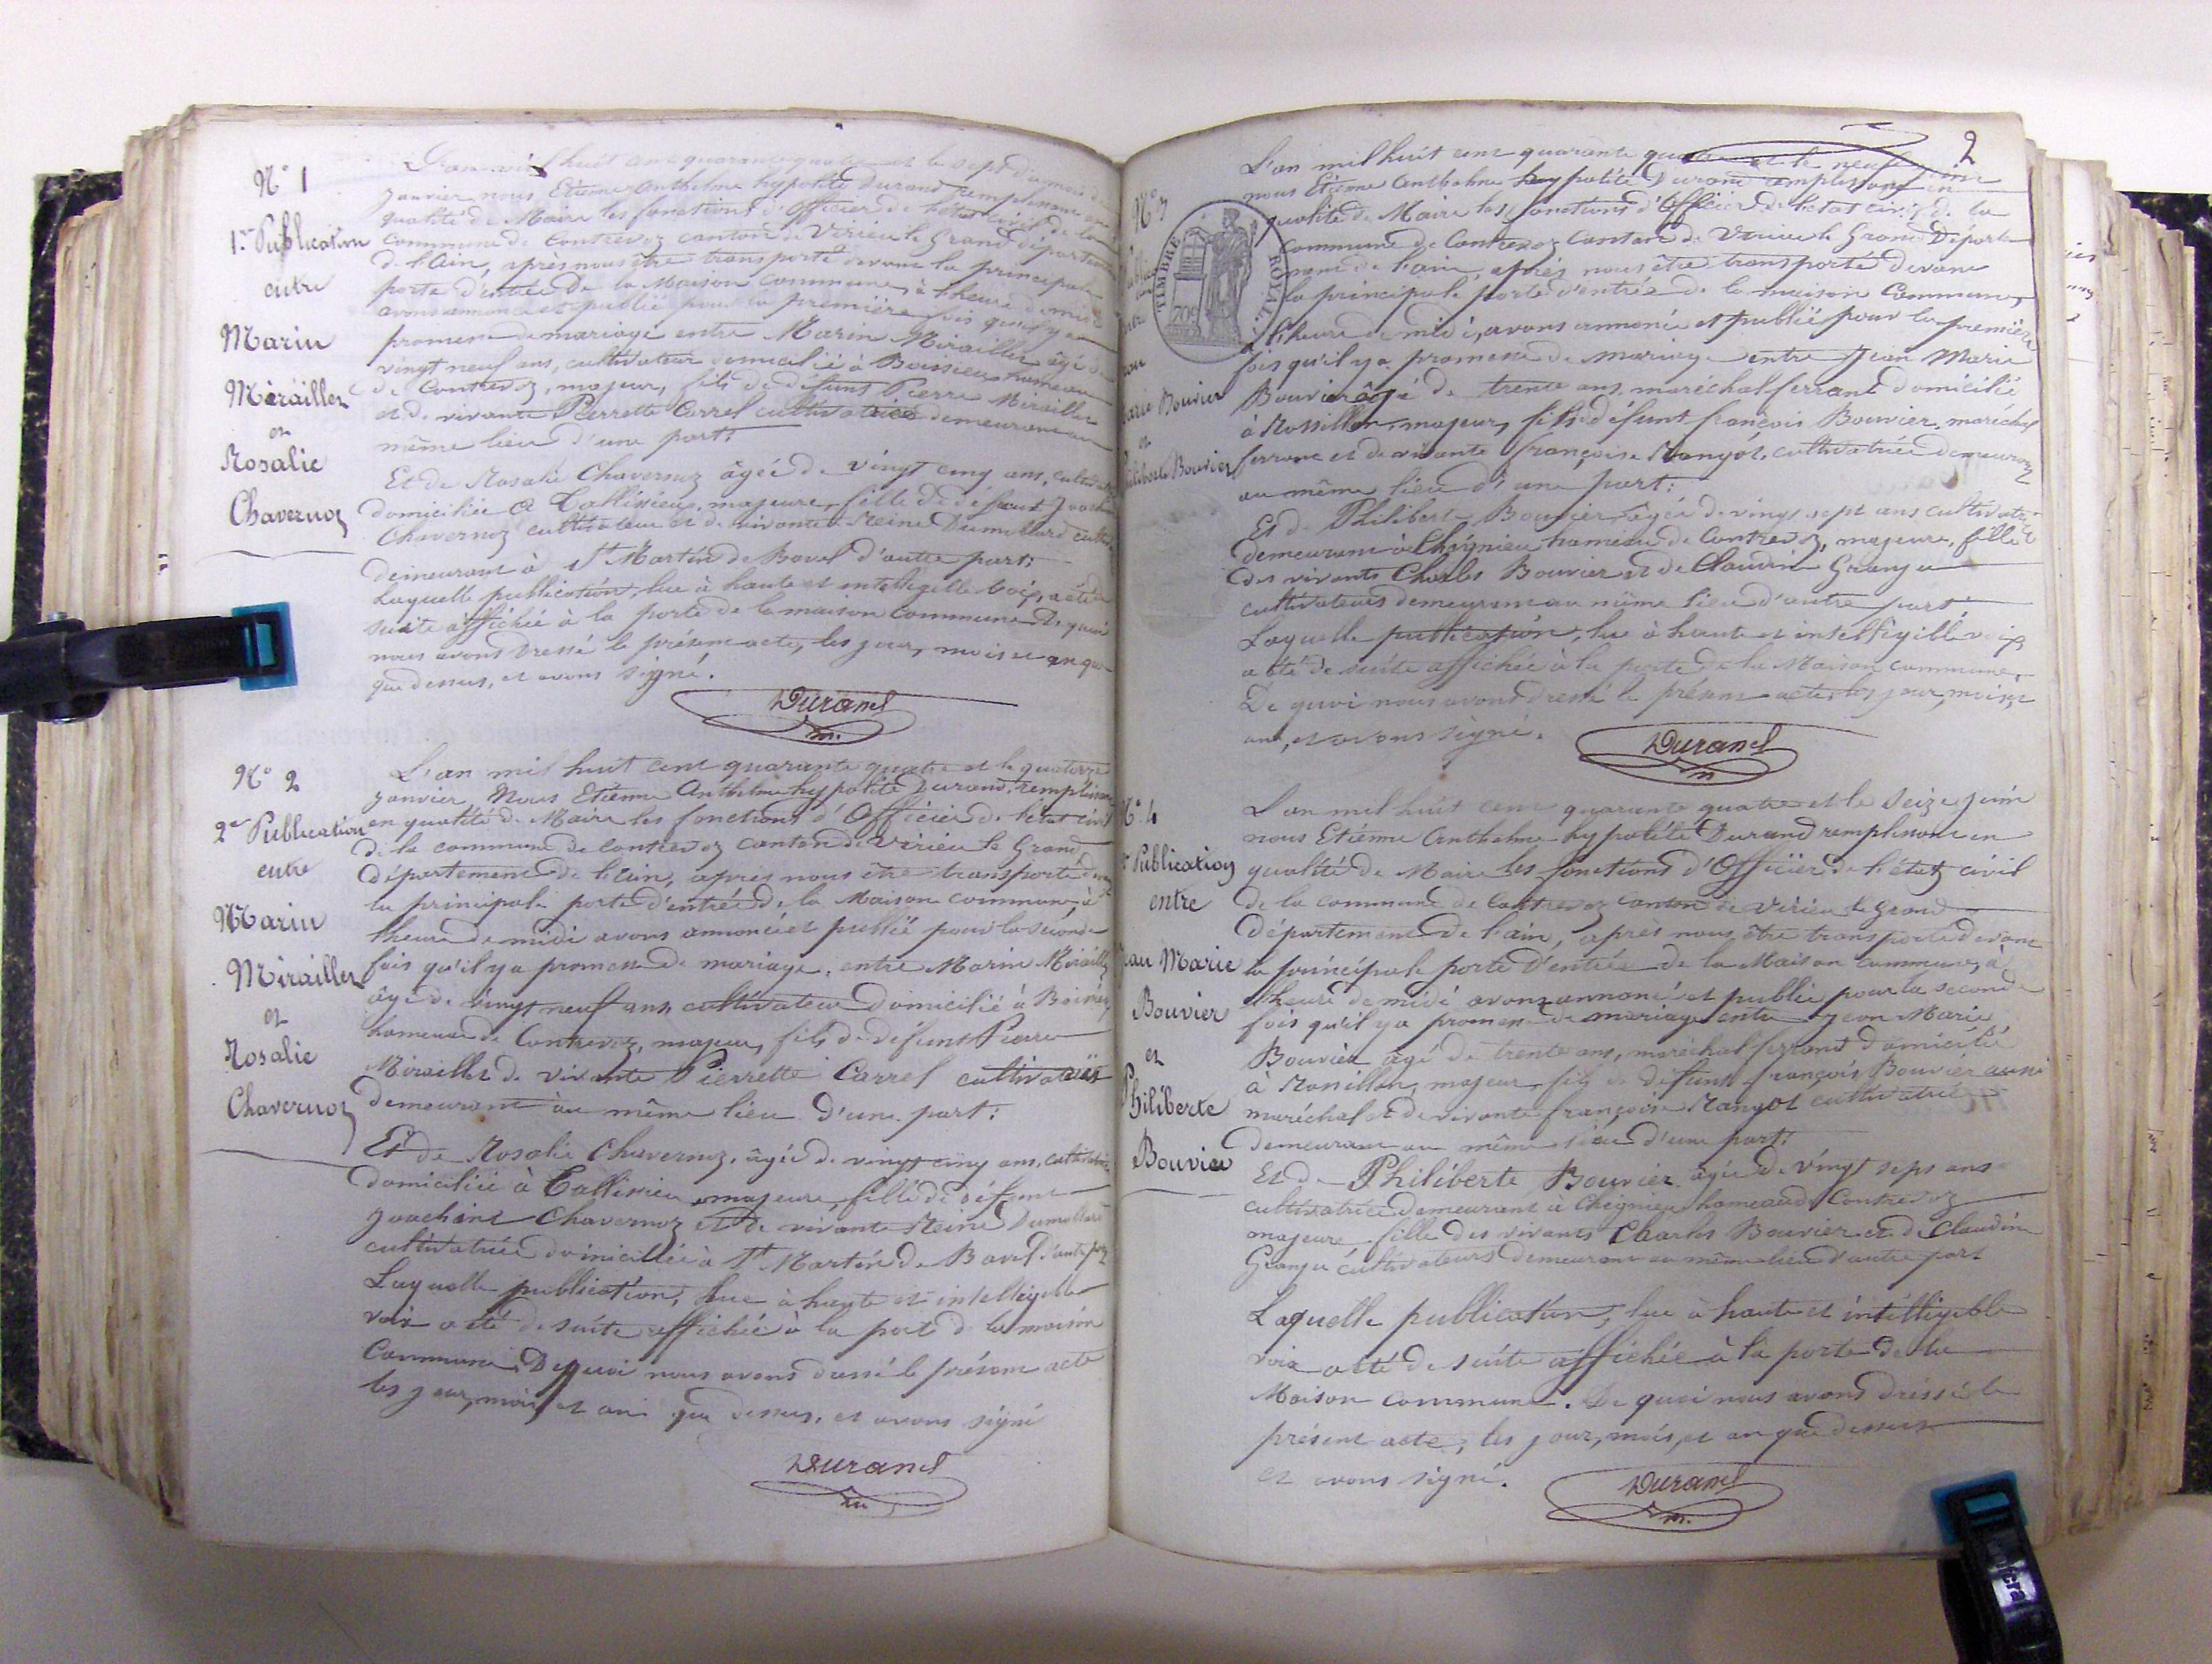 N° 1
1re Publication
entre
Marin
Mirailler
et
Rosalie
Chavernoz
L'an mil huit cent quarante quatre et le sept du mois de
janvier nous Etienne Anthelme hypolite Durand remplissant en
qualité de Maire les fonctions d'Officier de l'état civil de la
commune de Contrevoz canton de Virieu le Grand département
de l'Ain, après nous être transporté devant la principale
porte d'entrée de la Maison commune, à l'heure de midi
avons annoncé et publié pour la première fois qu'il y a
promesse de mariage entre Marin Mirailler âgé de
vingt neuf ans, cultivateur domicilié à Boissieu hameau
de Contrevoz, majeur, fils de défunt Pierre Mirailler
et de vivante Pierrette Carrel cultivatrice demeurant au
même lieu d'une part:
Et de Rosalie Chavernoz âgée de vingt cinq ans, cultivatrice
domiciliée à Tallissieu, majeure, fille de défunt Joachim
Chavernoz cultivateur et de vivante Reine Dumollard
demeurant à St Martin de Bavel d'autre part:
Laquelle publication, lue à haute et intelligible voix, a été de
suite affichée à la porte de la maison commune. De quoi
nous avons dressé le présent acte, les jour, mois et an que
que dessus, et avons signé.
Durand
N° 2
2e Publication
entre
Marin
Mirailler
et
Rosalie
Chavernoz
L'an mil huit cent quarante quatre et le quatorze
janvier, Nous Etienne Anthelme hypolite Durand, remplissant
en qualité de Maire les fonctions d'Officier de l'état civil
de la commune de Contrevoz canton de Virieu le Grand
département de l'ain, après nous être transporté devant
la principale porte d'entrée de la Maison commune, à
l'heure de midi avons annoncé et publié pour la seconde
fois qu'il y a promesse de mariage, entre Marin Mirailler
âgé de vingt neuf ans cultivateur domicilié à Boissieu
hameau de Contrevoz, majeur, fils de défunt Pierre
Mirailler et de vivante Pierrette Carrel cultivatrice
demeurant au même lieu d'une part:
Et de Rosalie Chavernoz, âgée de vingt cinq ans, cultivatrice
domiciliée à Tallissieu, majeure, fille de défunt
Joachim Chavernoz et de vivante Reine Dumollard
cultivatrice domiciliée à St Martin de Bavel d'autre part
Laquelle publication, lue à haute et intelligible
voix a été de suite affichée à la porte de la maison
Commune. De quoi nous avons dressé le présent acte
les jour, mois et an que dessus, et avons signé
Durand
2
N° 3
TIMBRE ROYAL
Marie Bouvier
et
Philiberte Bouvier
L'an mil huit cent quarante quatre et le neuf juin
nous Etienne Anthelme hypolite Durand remplissant en
qualité de Maire les fonctions d'Officier de l'état civil de la
commune de Contrevoz Canton de Virieu le Grand Départe
ment de l'ain, après nous être transporté devant
la principale porte d'entrée de la maison Commune,
à l'heure de midi, avons annoncé et publié pour la première
fois qu'il y a promesse de mariage entre Jean Marie
Bouvier âgé de trente ans, maréchal ferrant domicilié
à Rossillon, majeur, fils de défunt françois Bouvier, maréchal
ferrant et de vivante françoise Mangot, cultivatrice demeurant
au même lieu d'une part:
Et de Philiberte Bouvier, âgée de vingt sept ans cultivatrice
demeurant à Cheignieu hameau de Contrevoz, majeure, fille
des vivants Charles Bouvier et de Claudine
cultivateurs demeurant au même lieu d'autre part:
Laquelle publication, lue à haute et intelligible voix
a été de suite affichée à la porte de la Maison commune,
De quoi nous avons dressé le présent acte, les jour, mois et
an, et avons signé.
Durand
N° 4
Publication
entre
Jean Marie
Bouvier
et
Philiberte
Bouvier
L'an mil huit cent quarante quatre et le seize juin
nous Etienne Anthelme hypolite Durand remplissant en
qualité de Maire les fonctions d'Officier de l'état civil
de la commune de Contrevoz canton de Virieu le Grand
Département de l'ain, après nous être transporté devant
la principale porte d'entrée de la Maison commune, à
l'heure de midi avons annoncé et publié pour la seconde
fois qu'il y a promesse de mariage entre Jean Marie
Bouvier âgé de trente ans, maréchal ferrant domicilié
à Rossillon, majeur, fils de défunt françois Bouvier aussi
maréchal et de vivante françoise Mangot cultivatrice
demeurant au même lieu d'une part:
Et de Philiberte Bouvier âgée de vingt sept ans
cultivatrice demeurant à Cheignieu hameau de Contrevoz
majeure fille des vivants Charles Bouvier et de Claudine
cultivateurs demeurant au même lieu d'autre part
Laquelle publication, lue à haute et intelligible
voix a été de suite affichée à la porte de la
Maison commune. De quoi nous avons dressé le
présent acte, les jour, mois, et an que dessus
et avons signé.
Durand